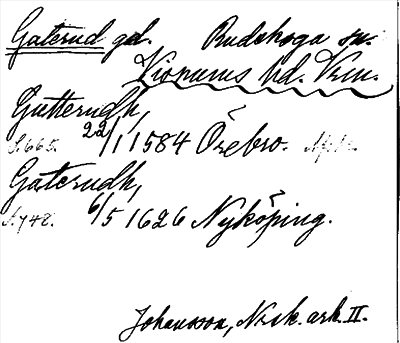 Gaterud gd. Rudskoga sn.
Visnums hd. Vrm.
Gutterudh,
S. 665. 22/1 1584 Örebro.
Gaterudh,
S. 748. 6/5 1626 Nyköping.
Johansson, Nrsk. ark. II.